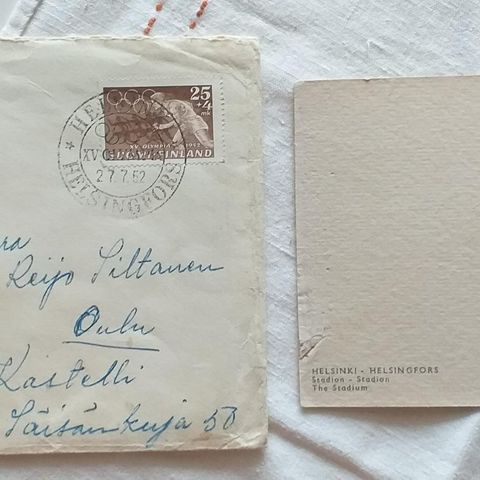 25
+4
mk
XV OLYMPIA 1952
SUOMI-FINLAND
HELSINKI
XV OLYMPIA
27.7.52
HELSINGFORS
Reijo Siltanen
Oulu
Kastelli
HELSINKI - HELSINGFORS
Stadion - Stadion
The Stadium